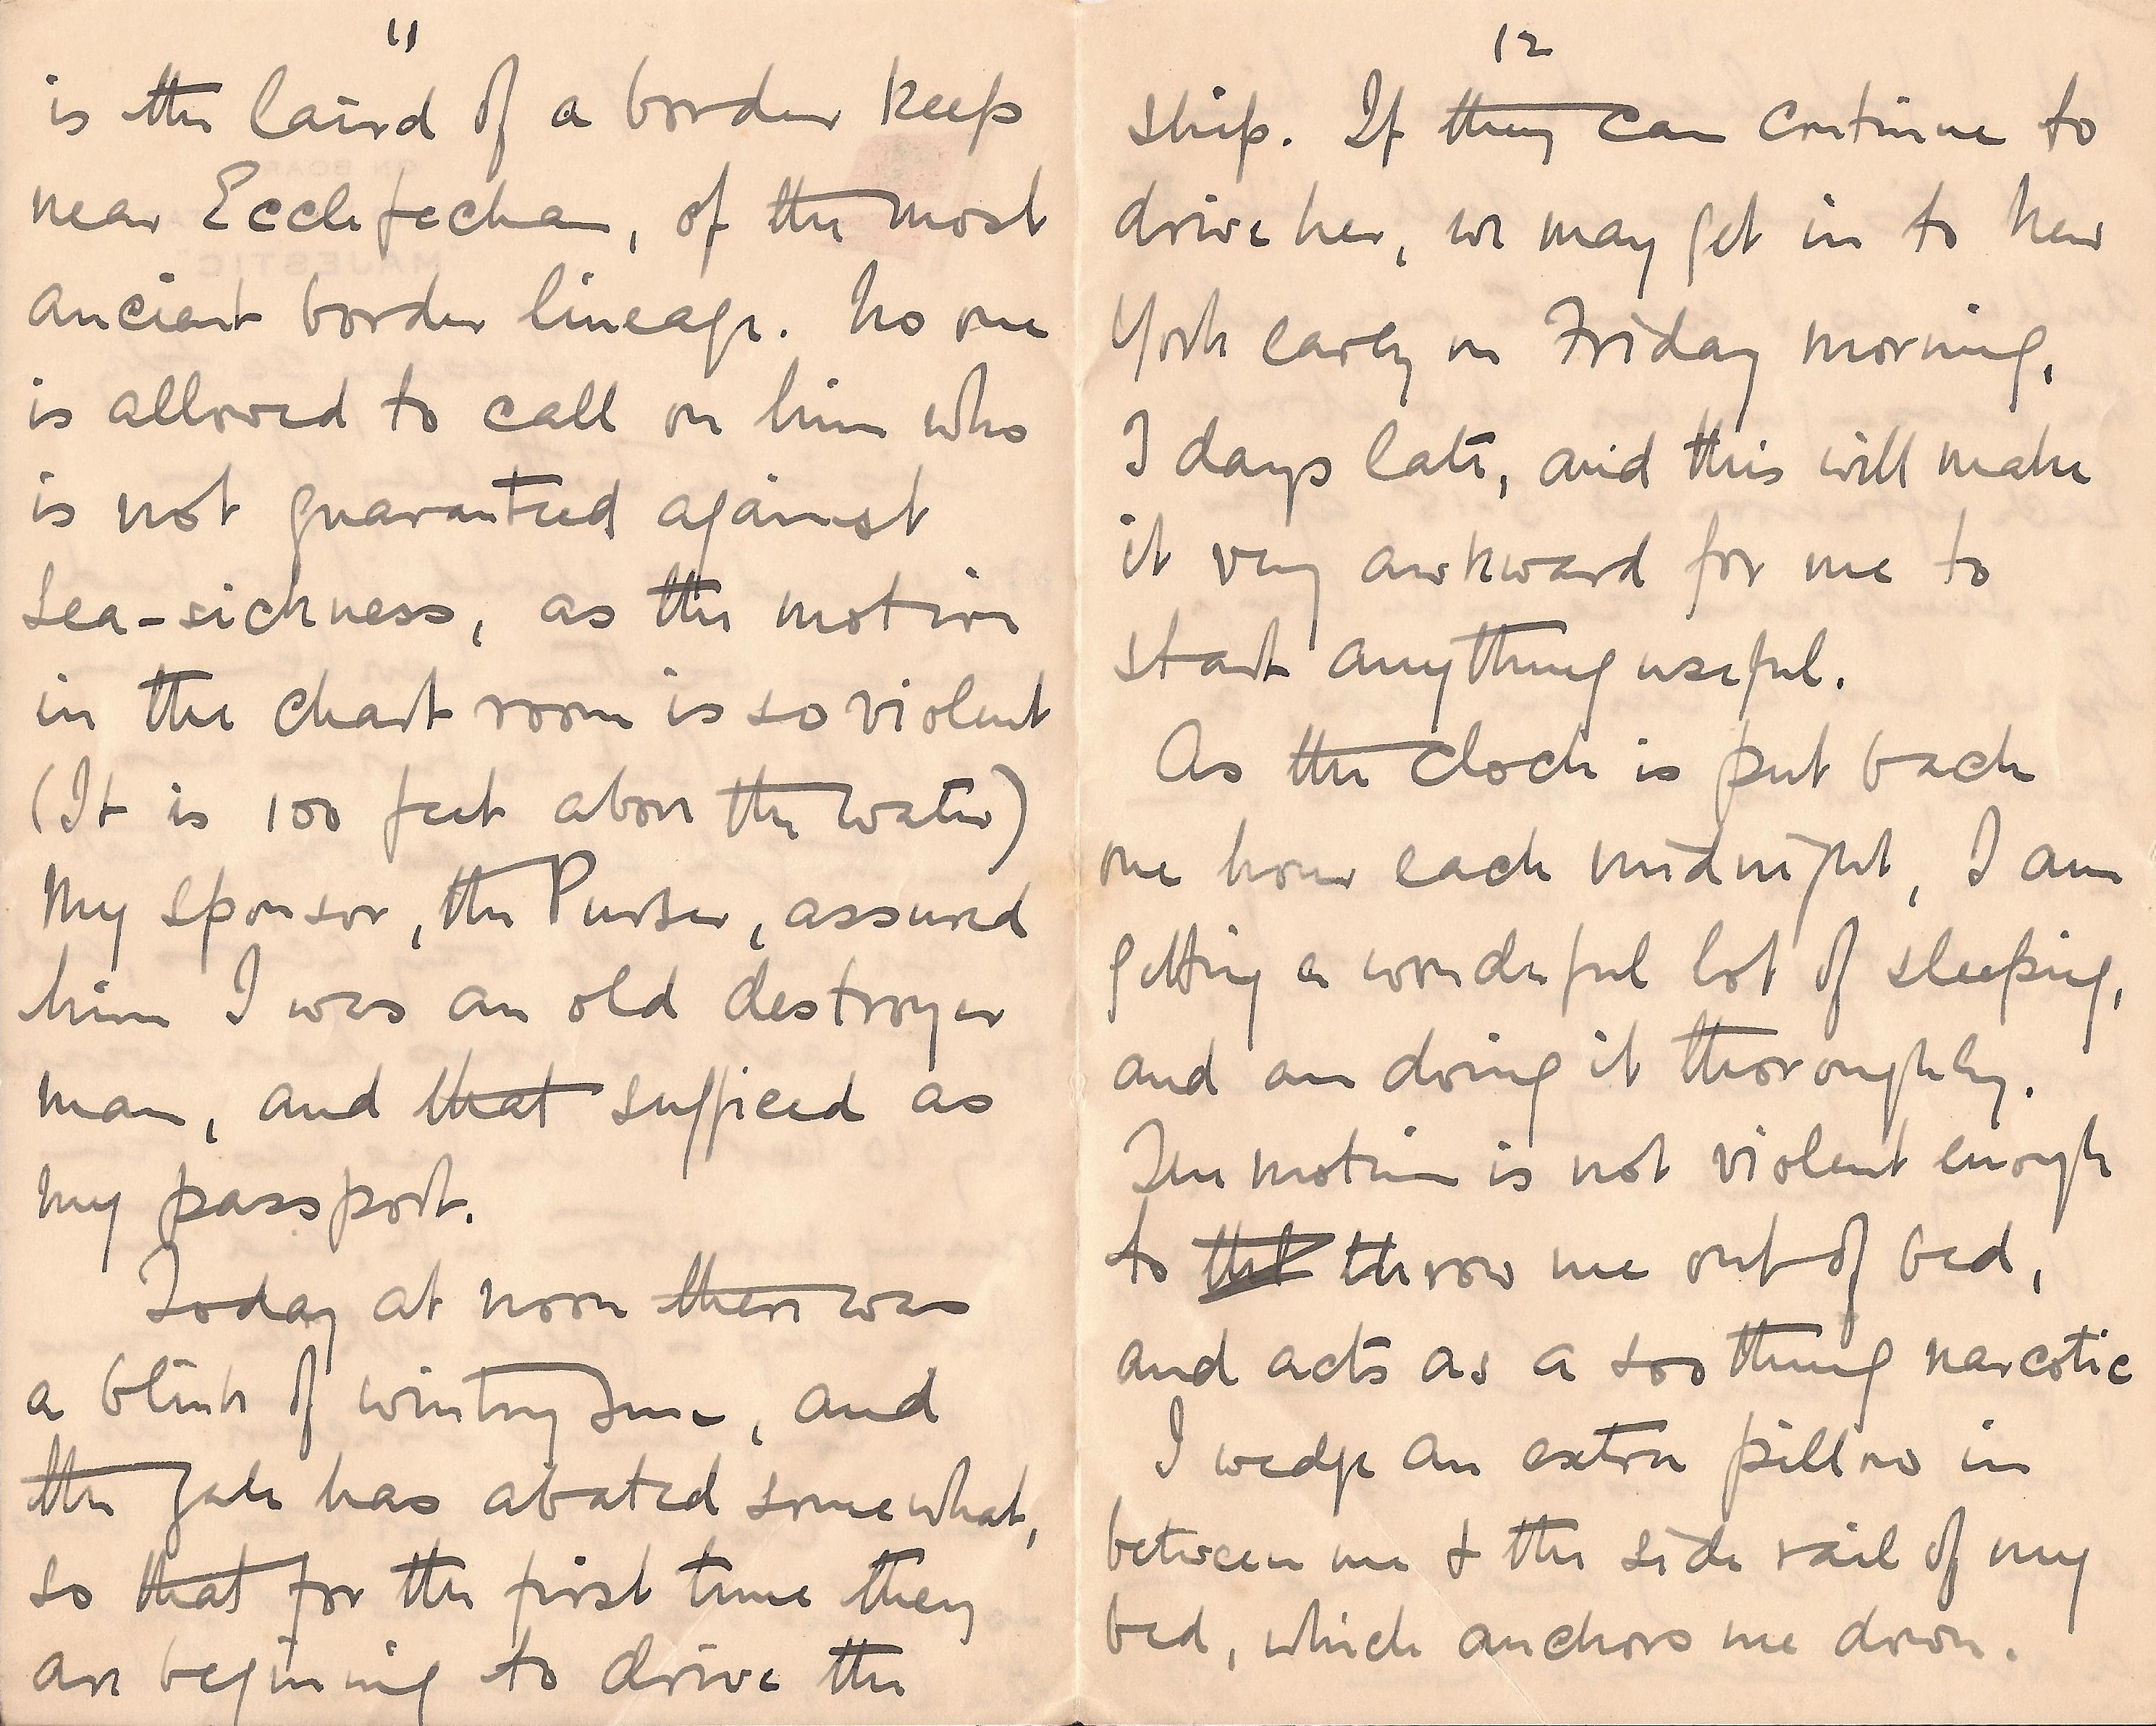 11
is the laird of a border keep
near Ecclefechan, of the most
ancient border lineage. No one
is allowed to call on him who
is not guaranteed against
sea-sickness, as the motion
in the chart room is so violent
(It is 100 feet above the water)
My sponsor, the Purser, assured
him I was an old destroyer
man, and that sufficed as
my passport.
Today at noon there was
a blink of wintry sun, and
the gale has abated somewhat,
so that for the first time they
are beginning to drive the
12
ship. If they can continue to
drive her, we may get in to New
York early on Friday morning,
days late, and this will make
it very awkward for me to
start anything useful.
As the clock is put back
one hour each midnight, I am
getting a wonderful lot of sleeping,
and am doing it thoroughly.
The motion is not violent enough
to throw me out of bed,
and acts as a soothing narcotic
I wedge an extra pillow in
between me & the side rail of my
bed, which anchors me down.
ON BOARD
MAJESTIC